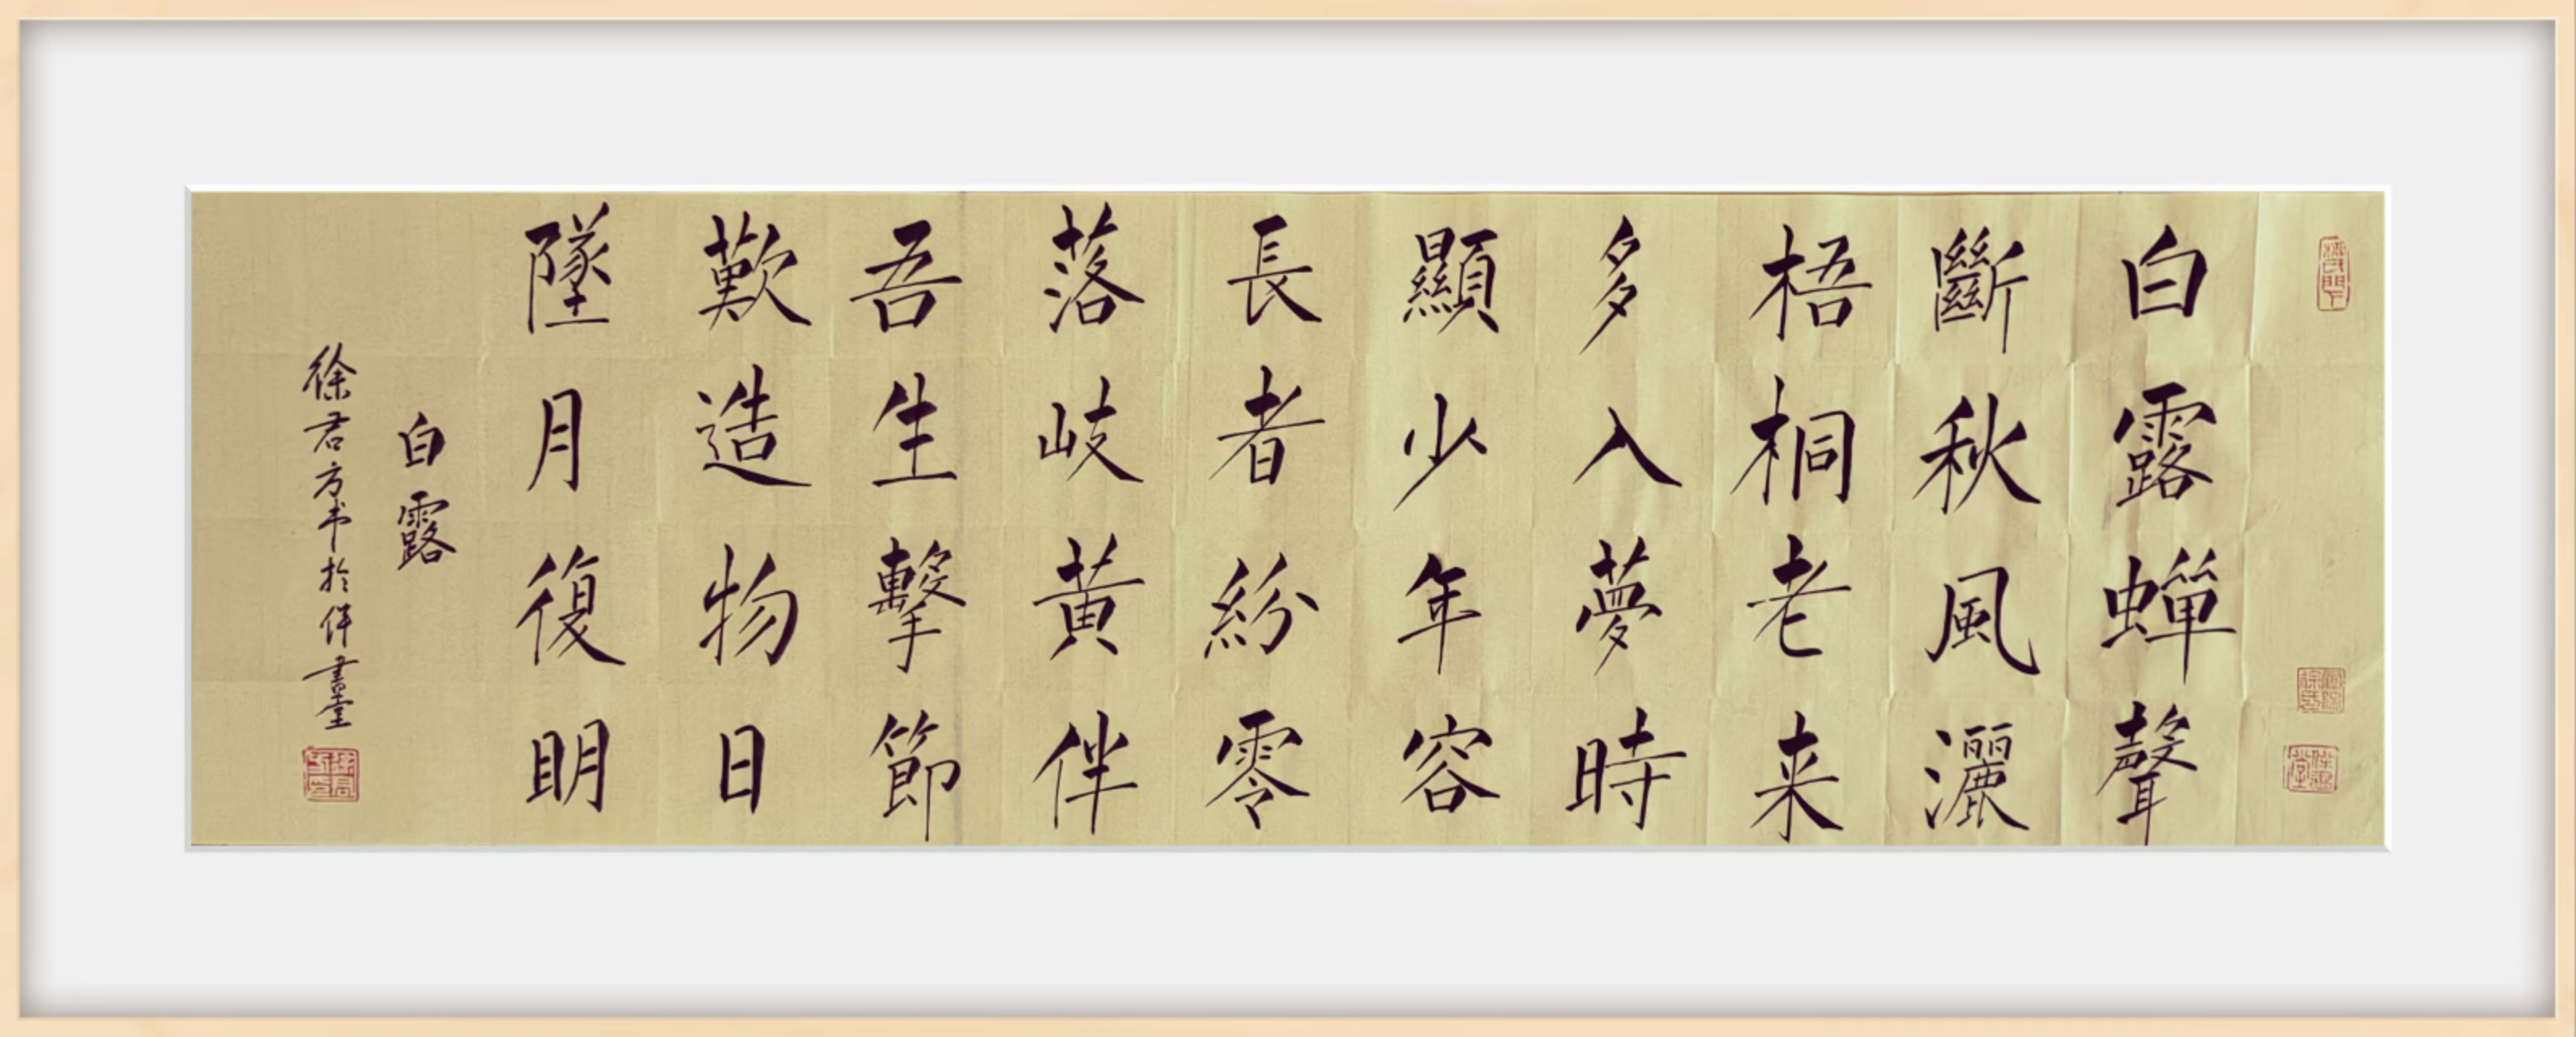 白露蟬聲
斷秋風灑
梧桐老来
多入夢時
顯少年容
長者紛零
落岐黄伴
吾生擊節
歎造物日
墜月復明
白露
徐君方书於伴書堂